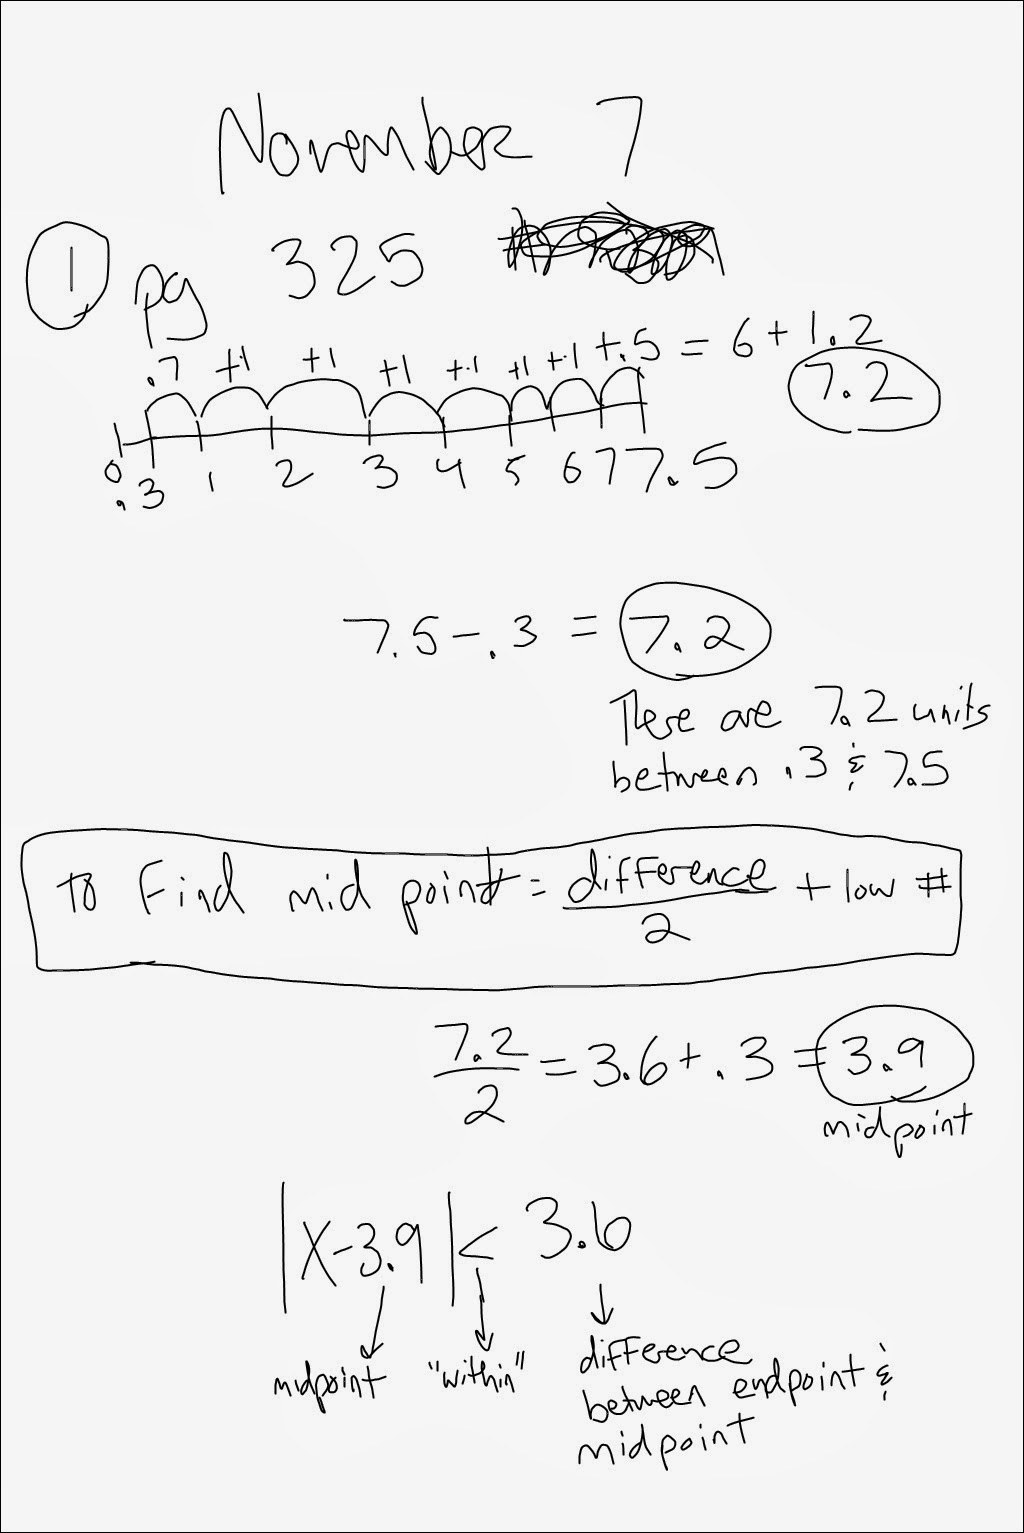 November 7
1 pg 325
.7 +1 +1 +1 +1 +1 +1 +.5 = 6 + 1.2
7.2
0 .3 1 2 3 4 5 6 7 7.5
7.5 - .3 = 7.2
There are 7.2 units
between .3 & 7.5
to Find mid point = difference/2 + low #
7.2/2 = 3.6 + .3 = 3.9
midpoint
|X - 3.9| < 3.6
midpoint "within" difference
between endpoint &
midpoint